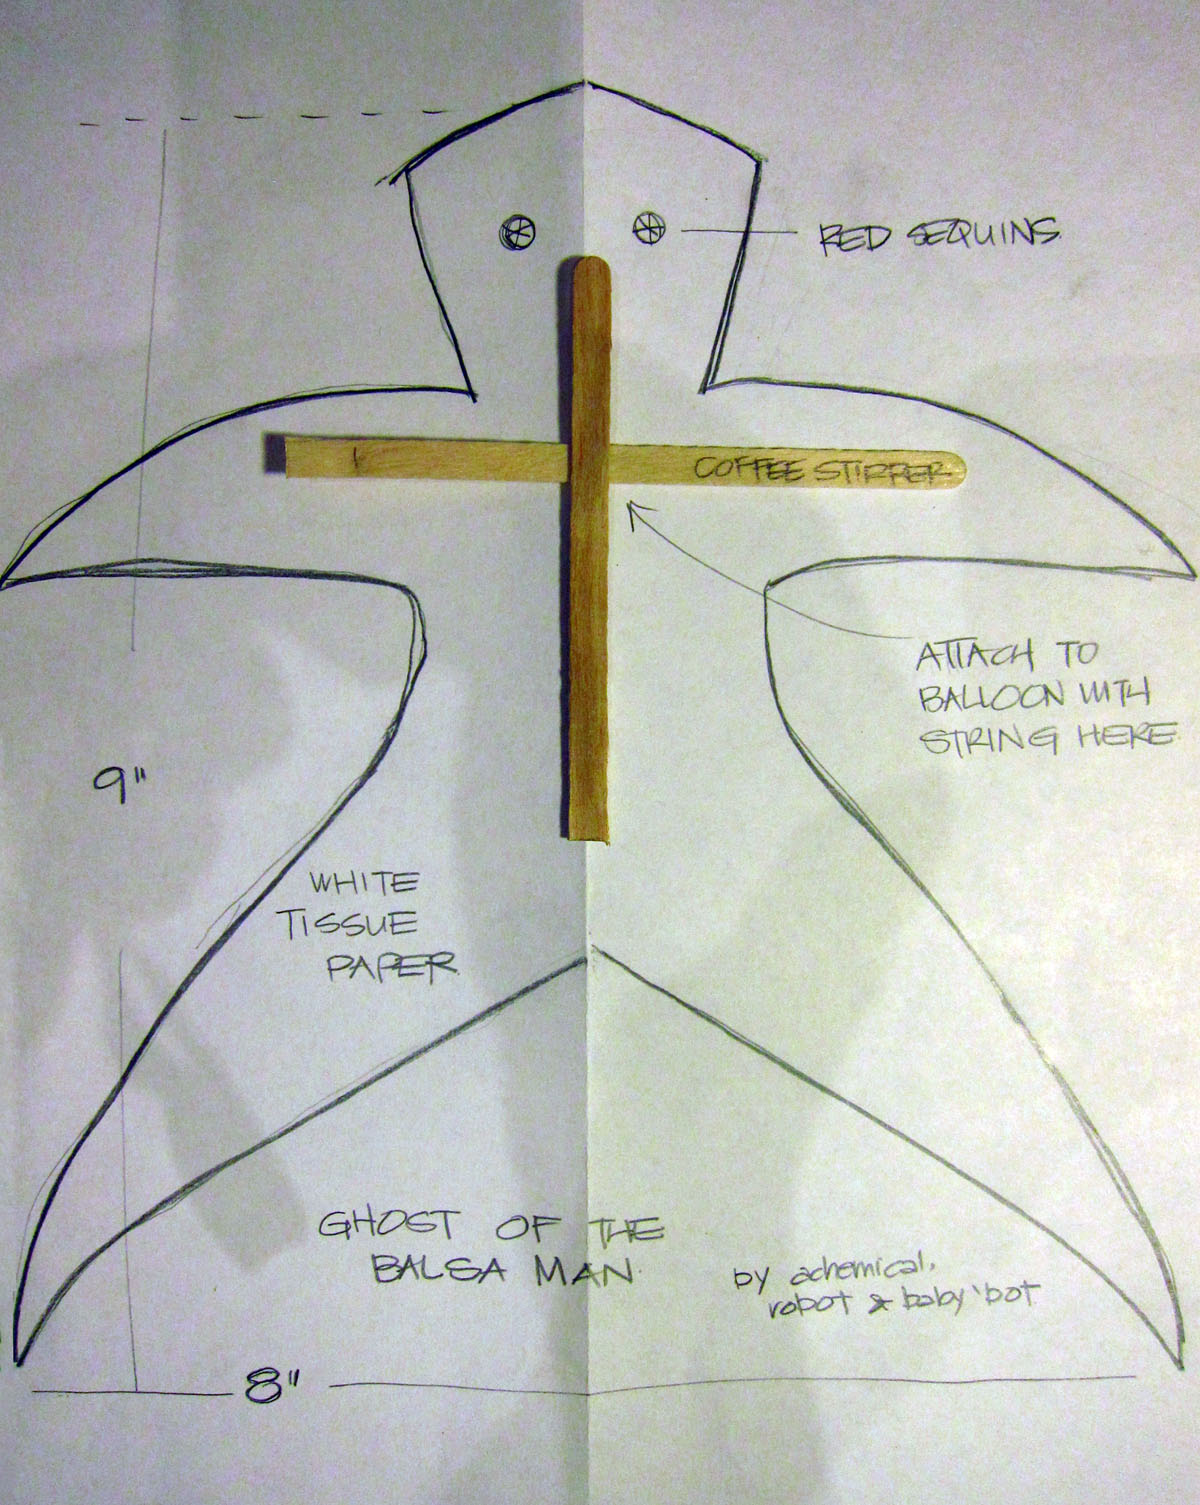 RED SEQUINS
COFFEE STIRRER
ATTACH TO
BALLOON WITH
STRING HERE
9"
WHITE
TISSUE
PAPER
GHOST OF THE
BALSA MAN
by achemical,
robot & baby 'bot
8"